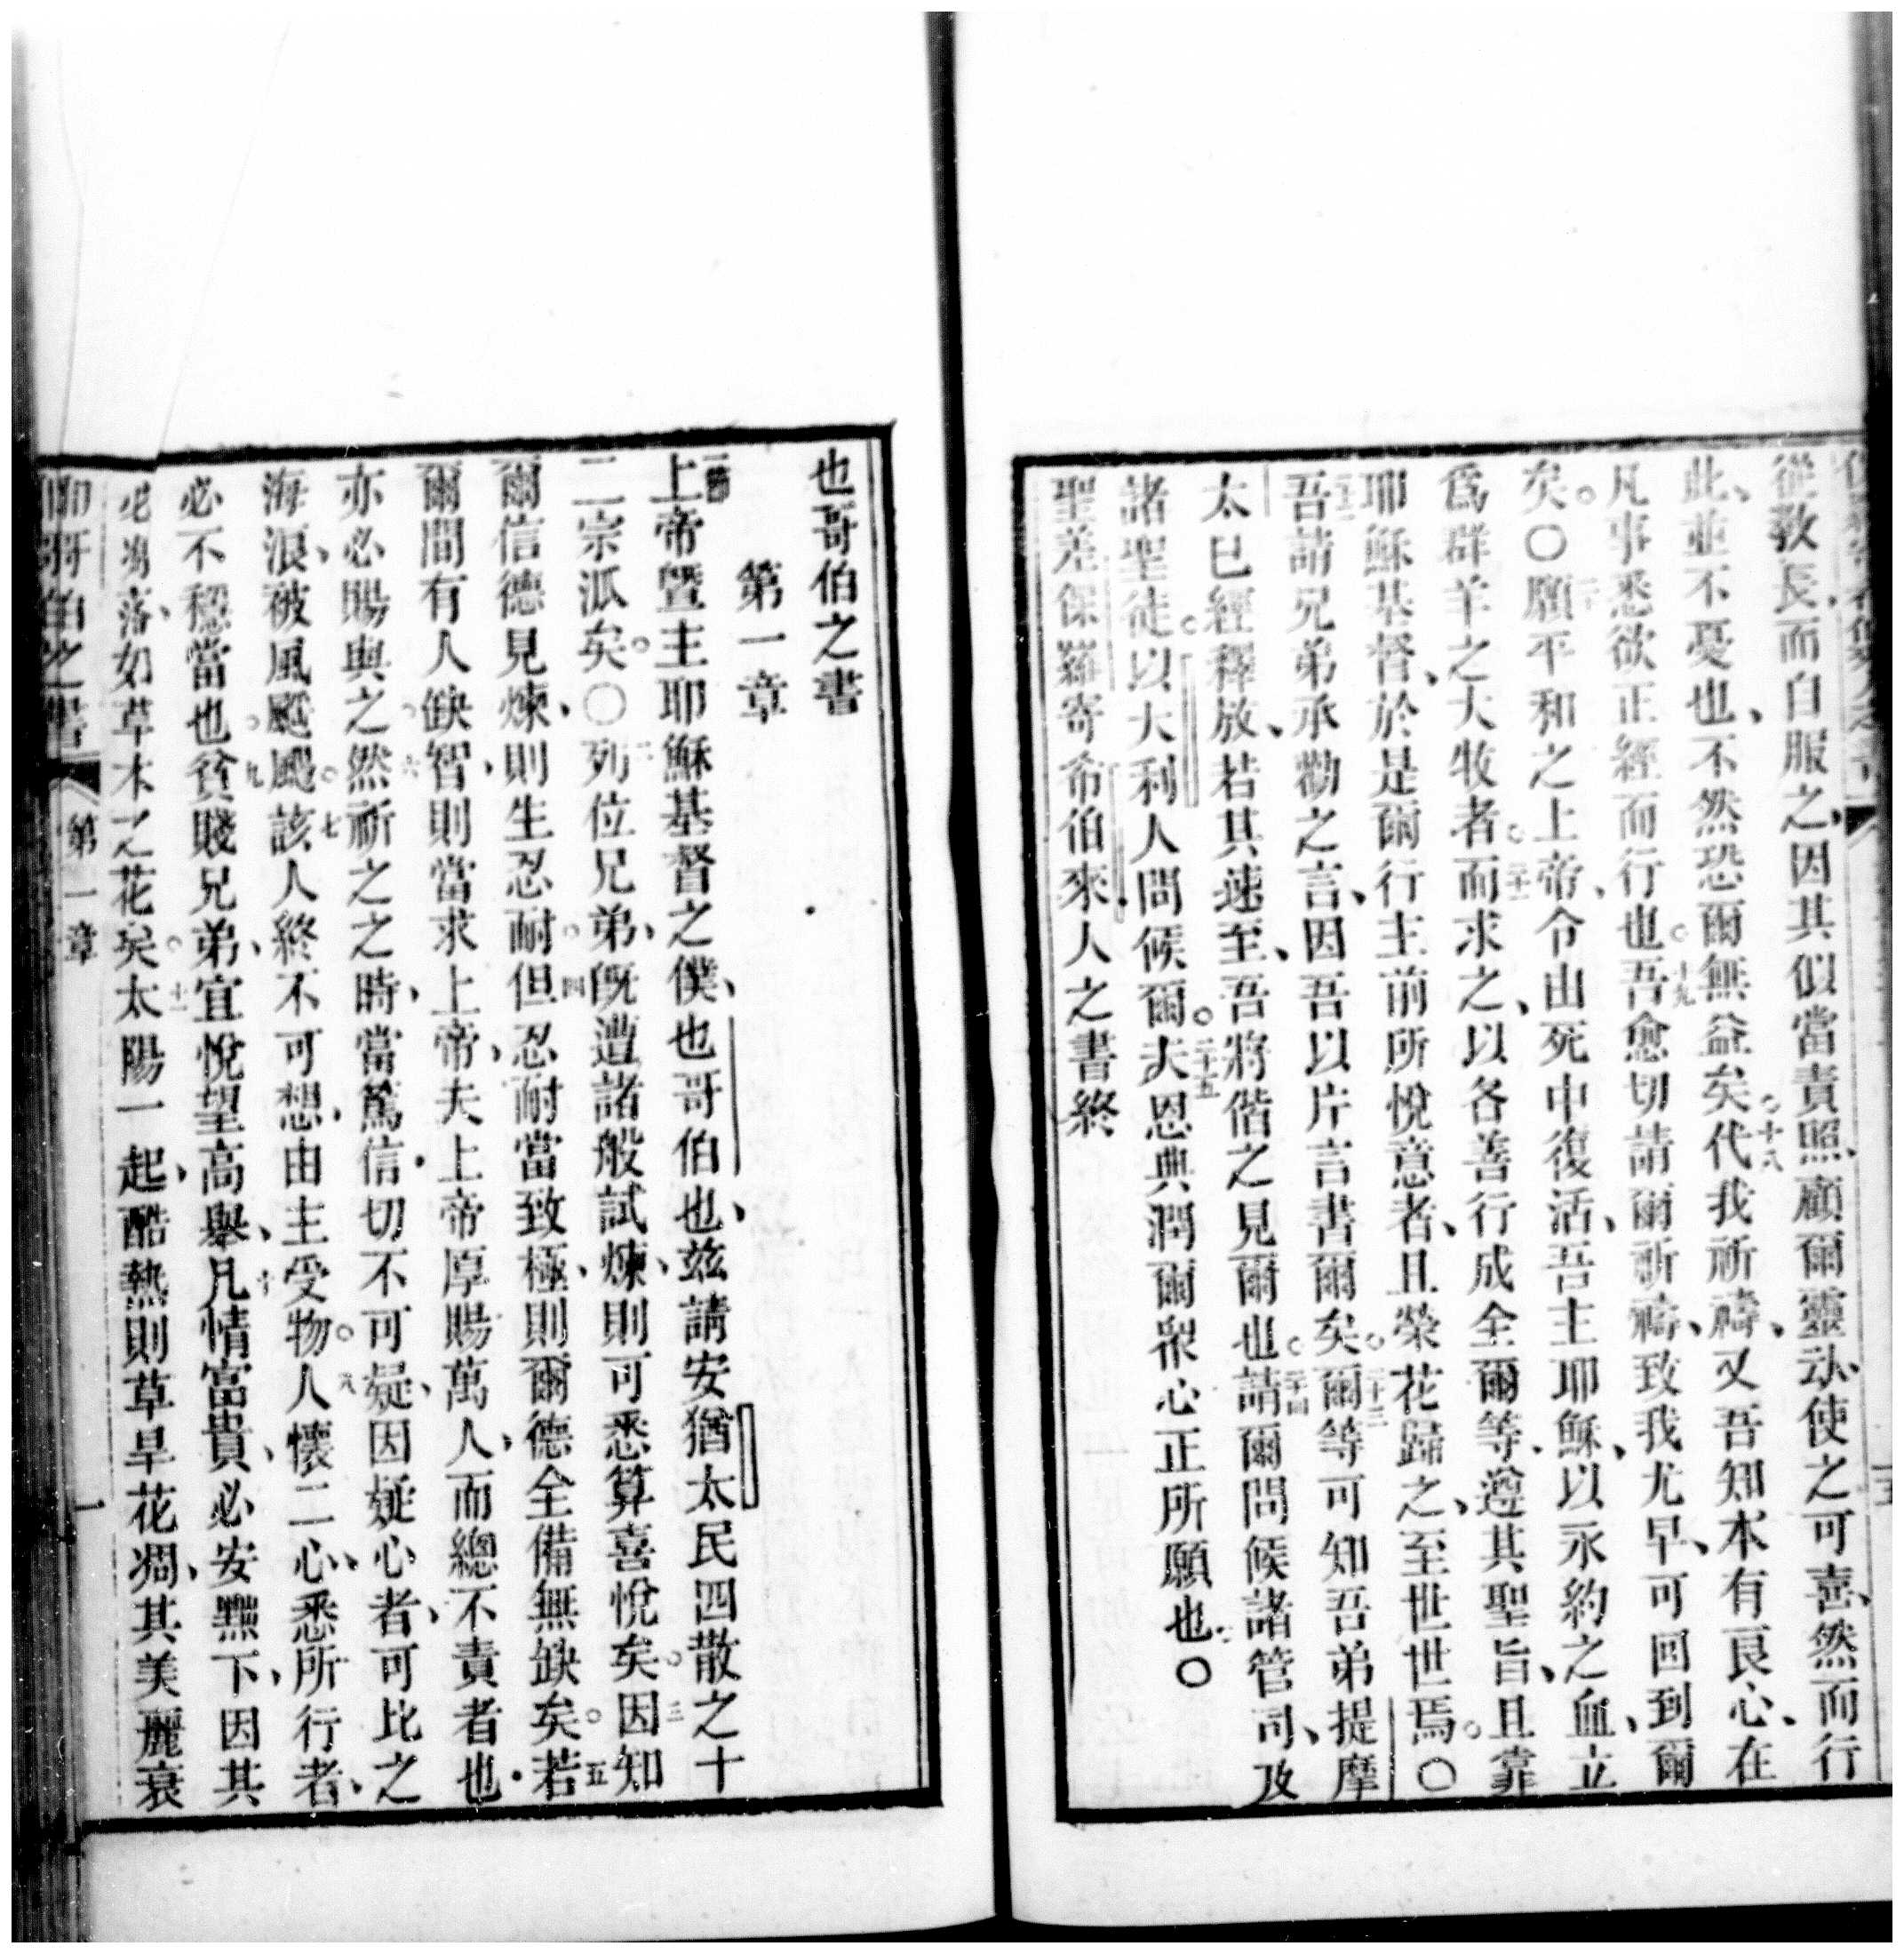 從教長而自服之因其似當責照顧爾靈动使之可喜、然而行
此、並不憂也、不然恐爾無益矣。十八代我祈禱、又吾知本有良心、在
凡事悉欲正經而行也。十九吾愈切請爾祈禱、致我尤早、可回到爾
矣。〇二十願平和之上帝、令由死中復活、吾主耶穌、以永約之血、立
爲群羊之大牧者。二十一而求之、以各善行成全爾等、遵其聖旨、且靠
耶穌基督、於是爾行主前所悅意者、且榮花歸之、至世世焉。〇
二十二吾請兄弟承勸之言、因吾以片言書爾矣。二十三爾等可知吾弟提摩
太已經釋放、若其速至、吾將偕之見爾也。二十四請爾問候諸管司、及
諸聖徒。以大利人問候爾。二十五大恩典潤爾衆心正所願也。〇
聖差保羅寄希伯來人之書終
也哥伯之書
第一章
一節上帝曁主耶穌基督之僕、也哥伯也、兹請安猶太民四散之十
二宗派矣。〇二列位兄弟、旣遭諸般試煉、則可悉算喜悅矣。三因知
爾信德見煉、則生忍耐。四但忍耐當致極、則爾德全備無缺矣。五若
爾間有人缺智、則當求上帝、夫上帝厚賜萬人、而總不責者也、
亦必賜與之。六然祈之之時、當篤信、切不可疑、因疑心者、可比之
海浪、被風颺颶。七該人終不可想、由主受物。八人懷二心、悉所行者、
必不穩當也。九貧賤兄弟、宜悅望高舉、十凡情富貴、必安黙下、因其
必凋落、如草木之花矣。十一太陽一起、酷熱則草旱花凋、其美麗衰
也哥伯之書 第一章 一